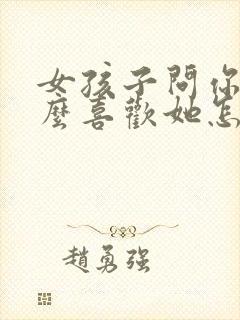 女孩子問你
麼喜歡她怎
趙勇强